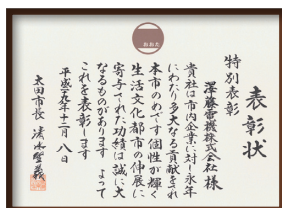 おおた
表彰状
特別表彰
澤藤電機株式会社 様
貴社は市内企業に対し永年
にわたり多大なる貢献をされ
本市のめざす個性が輝く
生活文化都市の伸展に
寄与された功績は誠に大
なるものがあります よって
これを表彰します
平成二十九年十二月八日
太田市長 清水聖義